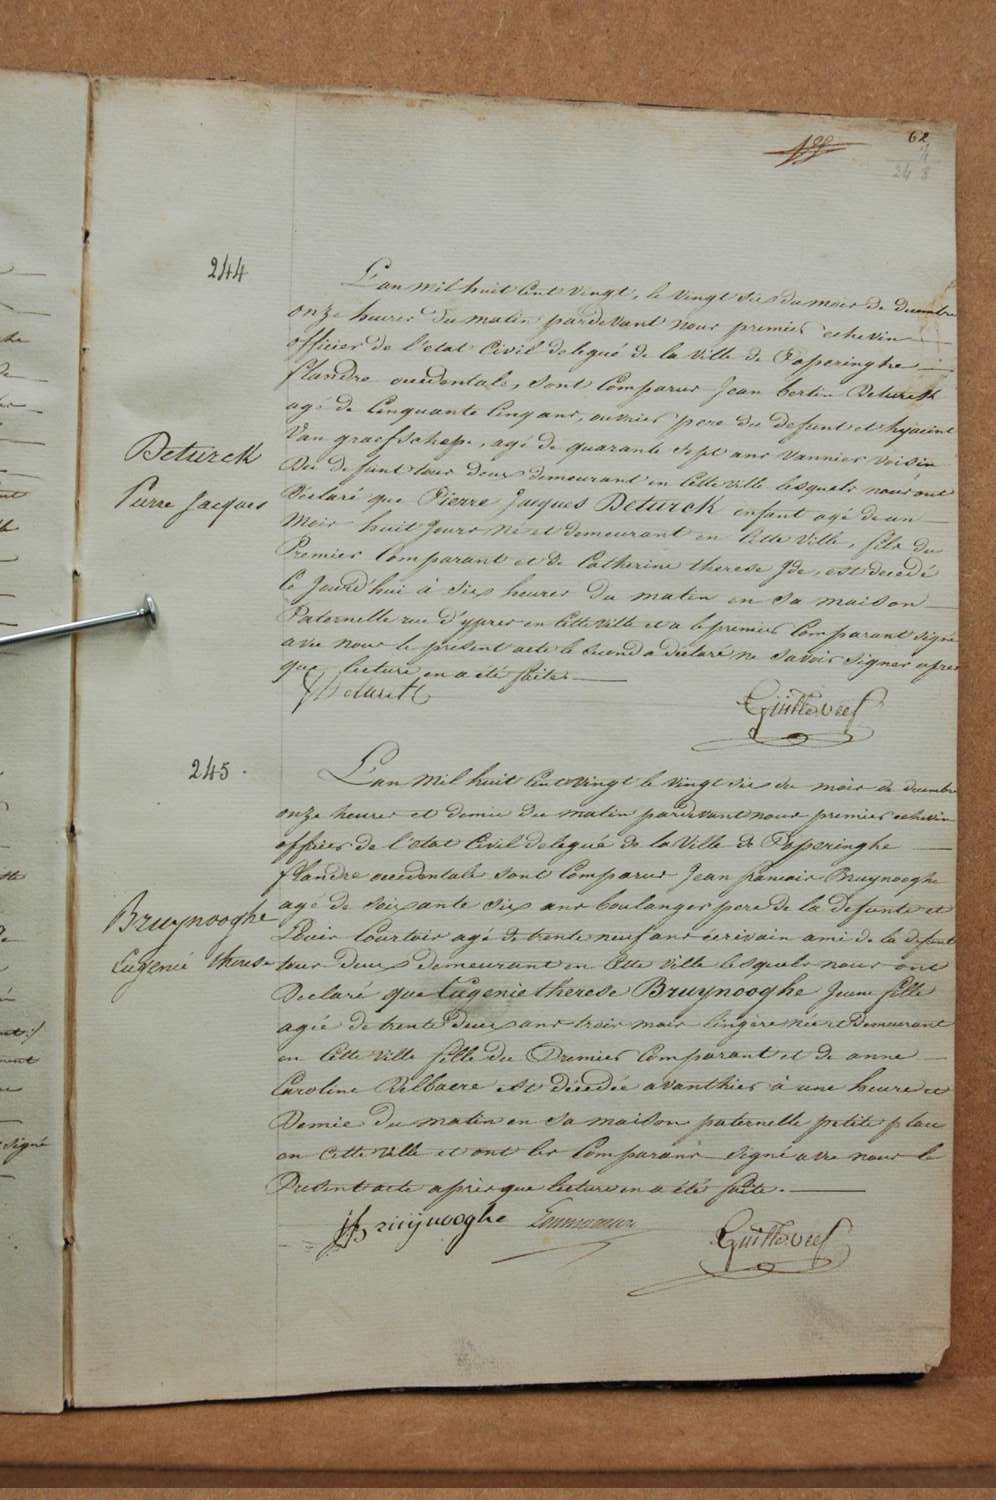 62
248
244
L'an mil huit cent vingt, le vingt six du mois de decembre
onze heures du matin pardevant nous premier echevin
officier de l'etat civil delegué de la ville de Poperinghe
flandre occidentale, sont comparus Jean bertin Deturck
agé de cinquante cinq ans, ouvrier pere du defunt et hyacint
Van graefschepe, agé de quarante sept ans vannier voisin
du defunt tous deux demeurant en cette ville lesquels nous ont
Déclaré que Pierre Jacques Deturck enfant agé de un
mois huit jours né et demeurant en cette ville, fils du
Premier comparant et de Catherine therese Ide, est decedé
Ce Jourd'hui à six heures du matin en sa maison
Paternelle rue d'ypres en cette ville et a le premier comparant signé
avec nous le présent acte le second a déclaré ne savoir signer apres
que lecture en a été faite.
Deturck
Pierre Jacques
Deturck
Guillevres
245.
L'an mil huit cent vingt le vingt six du mois de decembre
onze heures et demie du matin pardevant nous premier echevin
officier de l'etat civil delegué de la ville de Poperinghe
flandre occidentale sont comparus Jean francois Bruynooghe
agé de soixante six ans boulanger pere de la defunte et
Louis Courtois agé de trente neuf ans écrivain ami de la defunte
tous deux demeurant en cette ville lesquels nous ont
Declaré que Eugenie therese Bruynooghe Jeune fille
agée de trente deux ans trois mois lingère née et demeurant
en cette ville fille du Premier comparant et de anne
Caroline Delbaere est décédée avanthier à une heure et
Demie du matin en sa maison paternelle petite place
en cette ville et ont les comparans signé avec nous le
Présent acte après que lecture en a été faite.
Bruynooghe
Eugenié therese
jf Bruijnooghe